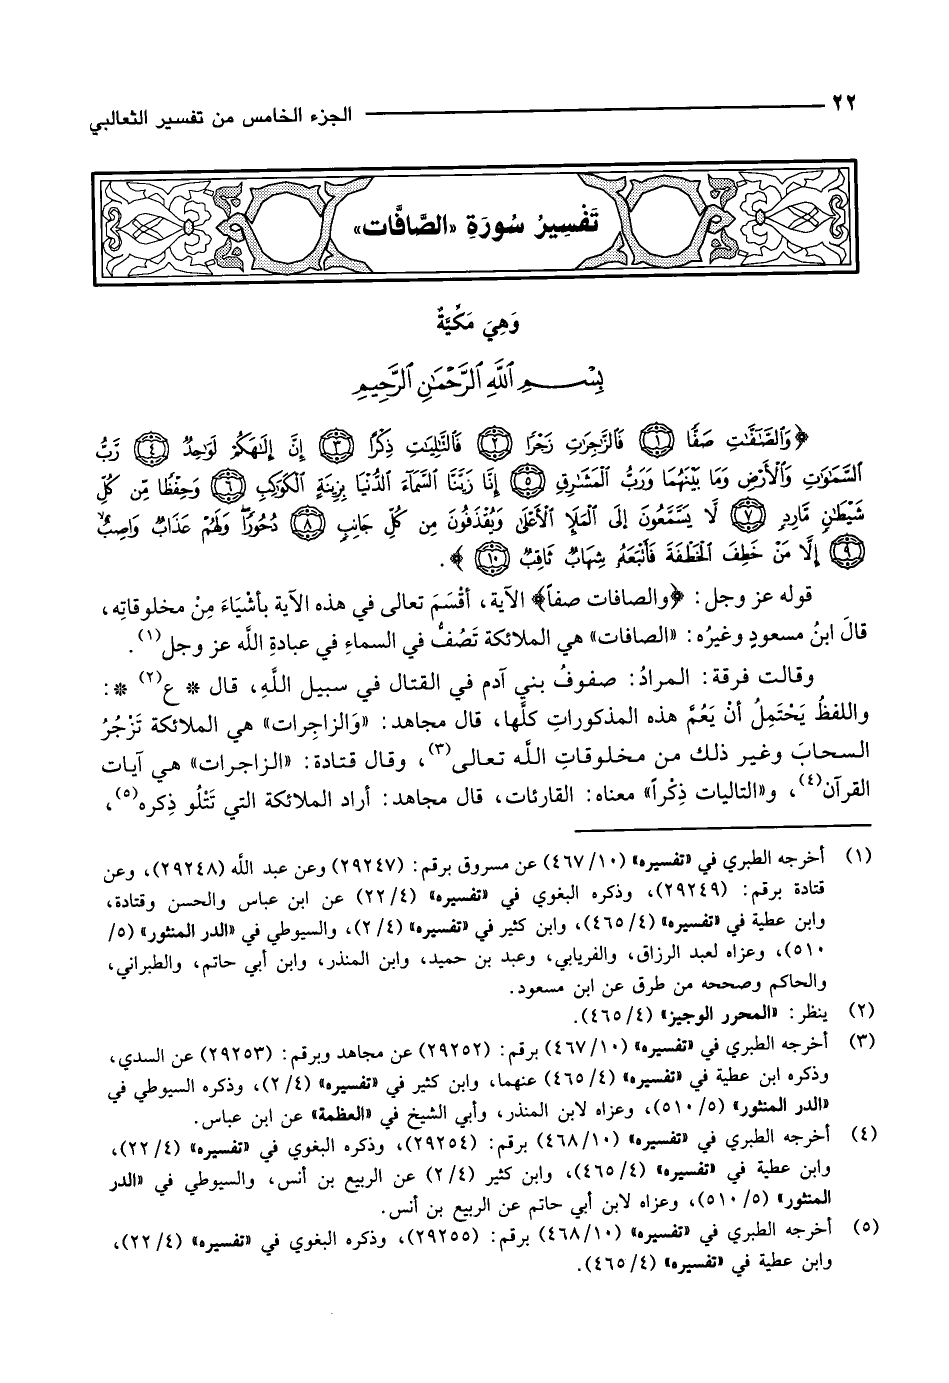 ٢٢ الجزء الخامس من تفسير الثعالبي
تَفْسِيرُ سُورَةِ «الصَّافَّات»
وَهِيَ مَكِّيَّةٌ
بِسْمِ ٱللَّهِ ٱلرَّحْمَٰنِ ٱلرَّحِيمِ
﴿وَٱلصَّٰٓفَّٰتِ صَفًّا ١ فَٱلزَّٰجِرَٰتِ زَجْرًا ٢ فَٱلتَّٰلِيَٰتِ ذِكْرًا ٣ إِنَّ إِلَٰهَكُمْ لَوَٰحِدٌ ٤ رَّبُّ
ٱلسَّمَٰوَٰتِ وَٱلْأَرْضِ وَمَا بَيْنَهُمَا وَرَبُّ ٱلْمَشَٰرِقِ ٥ إِنَّا زَيَّنَّا ٱلسَّمَآءَ ٱلدُّنْيَا بِزِينَةٍ ٱلْكَوَاكِبِ ٦ وَحِفْظًا مِّن كُلِّ
شَيْطَٰنٍ مَّارِدٍ ٧ لَّا يَسَّمَّعُونَ إِلَى ٱلْمَلَإِ ٱلْأَعْلَىٰ وَيُقْذَفُونَ مِن كُلِّ جَانِبٍ ٨ دُحُورًا وَلَهُمْ عَذَابٌ وَاصِبٌ
٩ إِلَّا مَنْ خَطِفَ ٱلْخَطْفَةَ فَأَتْبَعَهُ شِهَابٌ ثَاقِبٌ ١٠﴾.
قوله عز وجل: ﴿والصافات صفاً﴾ الآية، أقْسَمَ تعالى في هذه الآية بأشْيَاءَ مِنْ مخلوقاتِه،
قالَ ابنُ مسعودٍ وغيرُه: «الصافات» هي الملائكة تَصُفُّ في السماءِ في عبادةِ اللَّه عز وجل(١).
وقالت فرقة: المرادُ: صفوفُ بني آدم في القتال في سبيل اللَّهِ، قال * ع(٢) *:
واللفظُ يَحْتَمِلُ أنْ يَعُمَّ هذه المذكوراتِ كلَّها، قال مجاهد: «وَالزاجرات» هي الملائكة تَزْجُرُ
السحابَ وغير ذلك من مخلوقاتِ اللَّه تعالى(٣)، وقال قتادة: «الزاجرات» هي آيات
القرآن(٤)، و«التاليات ذِكْراً» معناه: القارئات، قال مجاهد: أراد الملائكة التي تَتْلُو ذِكره(٥)،
(١) أخرجه الطبري في «تفسيره» (١٠/ ٤٦٧) عن مسروق برقم: (٢٩٢٤٧) وعن عبد اللَّه (٢٩٢٤٨)، وعن
قتادة برقم: (٢٩٢٤٩)، وذكره البغوي في «تفسيره» (٤/ ٢٢) عن ابن عباس والحسن وقتادة،
وابن عطية في «تفسيره» (٤/ ٤٦٥)، وابن كثير في «تفسيره» (٤/ ٢)، والسيوطي في «الدر المنثور» (٥/
٥١٠)، وعزاه لعبد الرزاق، والفريابي، وعبد بن حميد، وابن المنذر، وابن أبي حاتم، والطبراني،
والحاكم وصححه من طرق عن ابن مسعود.
(٢) ينظر: «المحرر الوجيز» (٤/ ٤٦٥).
(٣) أخرجه الطبري في «تفسيره» (١٠/ ٤٦٧) برقم: (٢٩٢٥٢) عن مجاهد وبرقم: (٢٩٢٥٣) عن السدي،
وذكره ابن عطية في «تفسيره» (٤/ ٤٦٥) عنهما، وابن كثير في «تفسيره» (٤/ ٢)، وذكره السيوطي في
«الدر المنثور» (٥/ ٥١٠)، وعزاه لابن المنذر، وأبي الشيخ في «العظمة» عن ابن عباس.
(٤) أخرجه الطبري في «تفسيره» (١٠/ ٤٦٨) برقم: (٢٩٢٥٤)، وذكره البغوي في «تفسيره» (٤/ ٢٢)،
وابن عطية في «تفسيره» (٤/ ٤٦٥)، وابن كثير (٤/ ٢) عن الربيع بن أنس، والسيوطي في «الدر
المنثور» (٥/ ٥١٠)، وعزاه لابن أبي حاتم عن الربيع بن أنس.
(٥) أخرجه الطبري في «تفسيره» (١٠/ ٤٦٨) برقم: (٢٩٢٥٥)، وذكره البغوي في «تفسيره» (٤/ ٢٢)،
وابن عطية في «تفسيره» (٤/ ٤٦٥).